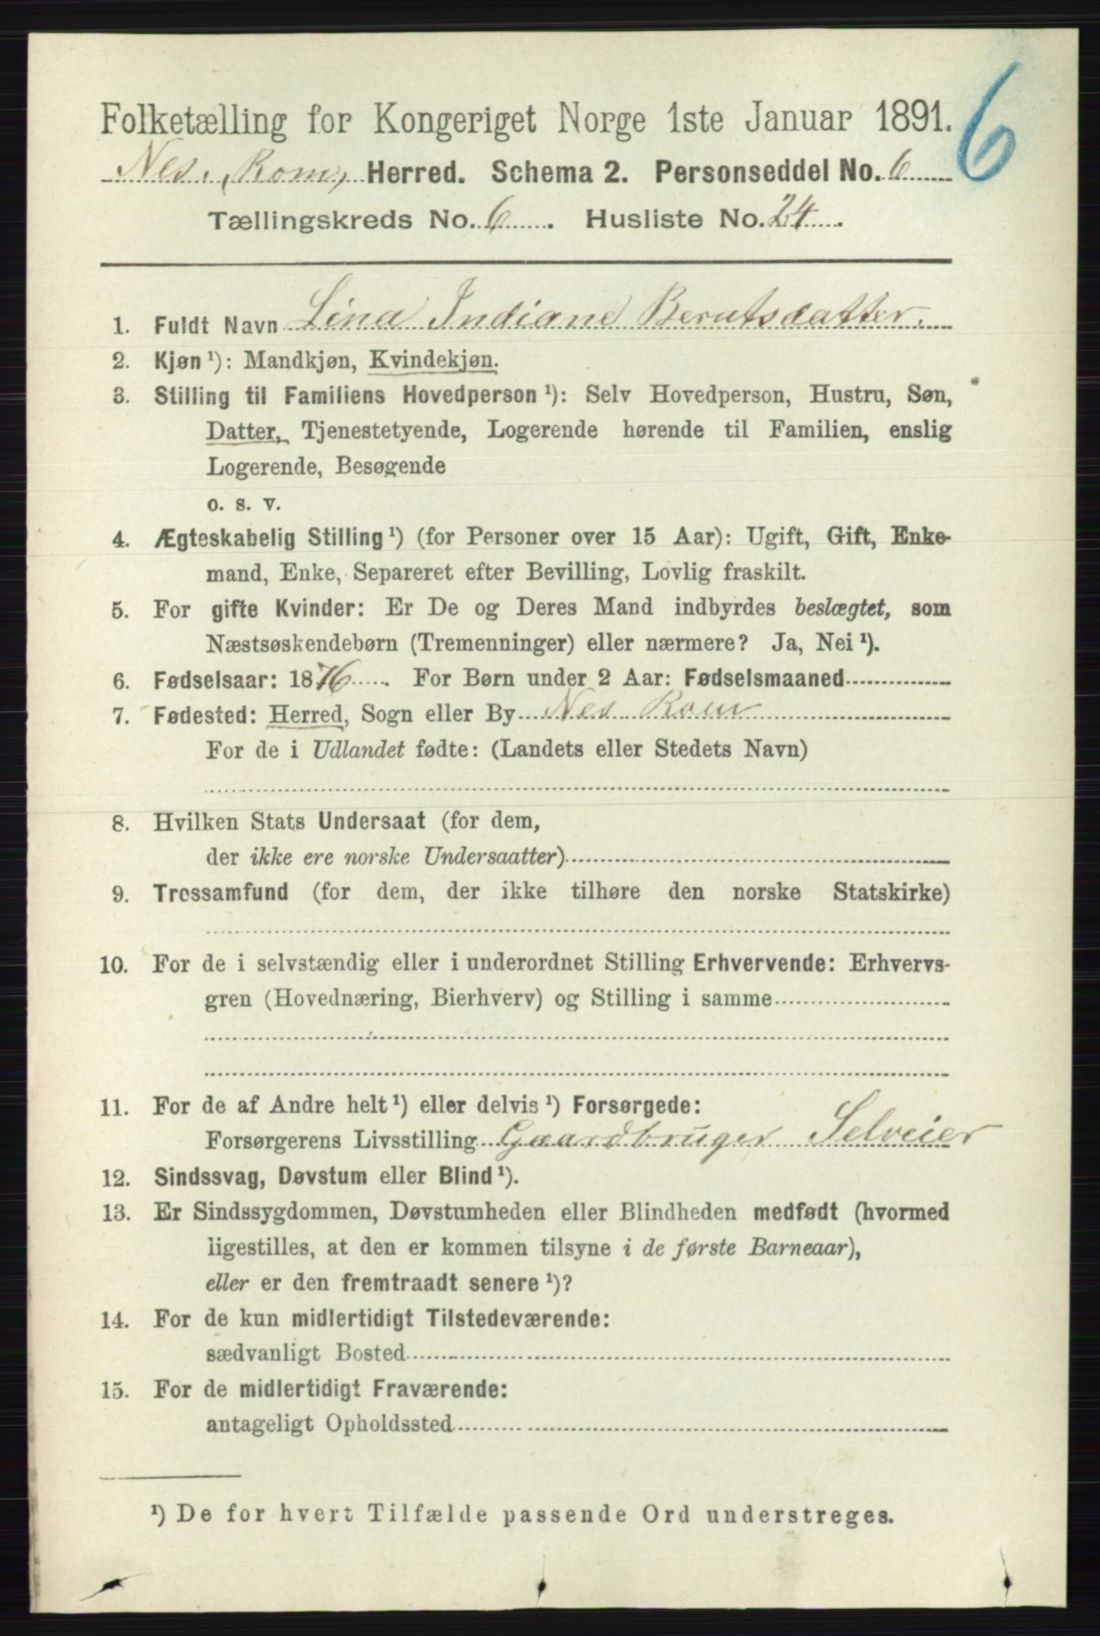 Folketælling for Kongeriget Norge 1ste Januar 1891.
6
Nes, Rom, Herred. Schema 2. Personseddel No. 6
Tællingskreds No. 6. Husliste No. 24.
1. Fuldt Navn Lina Indiane Berntsdatter.
2. Kjøn ¹): Mandkjøn, Kvindekjøn.
3. Stilling til Familiens Hovedperson ¹): Selv Hovedperson, Hustru, Søn,
Datter, Tjenestetyende, Logerende hørende til Familien, enslig
Logerende, Besøgende
o. s. v.
4. Ægteskabelig Stilling ¹) (for Personer over 15 Aar): Ugift, Gift, Enke-
mand, Enke, Separeret efter Bevilling, Lovlig fraskilt.
5. For gifte Kvinder: Er De og Deres Mand indbyrdes beslægtet, som
Næstsøskendebørn (Tremenninger) eller nærmere? Ja, Nei ¹).
6. Fødselsaar: 1876. For Børn under 2 Aar: Fødselsmaaned
7. Fødested: Herred, Sogn eller By Nes Rom
For de i Udlandet fødte: (Landets eller Stedets Navn)
8. Hvilken Stats Undersaat (for dem,
der ikke ere norske Undersaatter)
9. Trossamfund (for dem, der ikke tilhøre den norske Statskirke)
10. For de i selvstændig eller i underordnet Stilling Erhvervende: Erhvervs-
gren (Hovednæring, Bierhverv) og Stilling i samme
11. For de af Andre helt ¹) eller delvis ¹) Forsørgede:
Forsørgerens Livsstilling Gaardbruger Selveier
12. Sindssvag, Døvstum eller Blind ¹).
13. Er Sindssygdommen, Døvstumheden eller Blindheden medfødt (hvormed
ligestilles, at den er kommen tilsyne i de første Barneaar),
eller er den fremtraadt senere ¹)?
14. For de kun midlertidigt Tilstedeværende:
sædvanligt Bosted
15. For de midlertidigt Fraværende:
antageligt Opholdssted
¹) De for hvert Tilfælde passende Ord understreges.